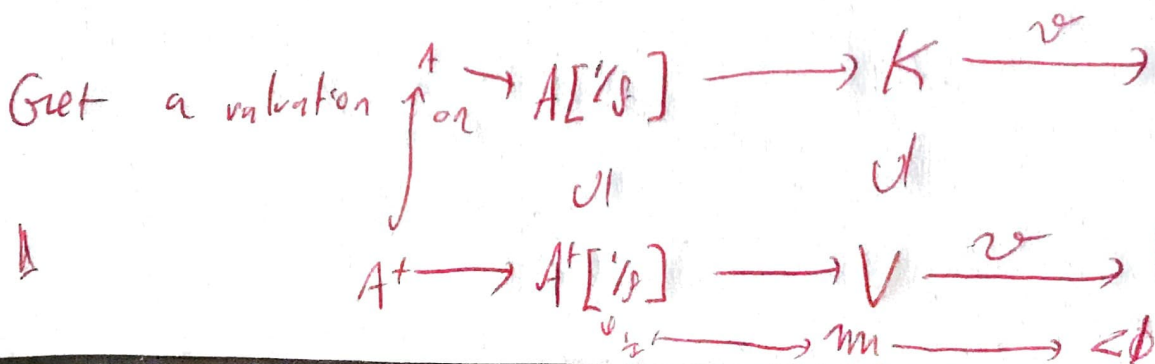 Get a valuation on A → A[1/f] → K →^v
∪| ∪|
A⁺ → A⁺[1/f] → V →^v
→ m → <